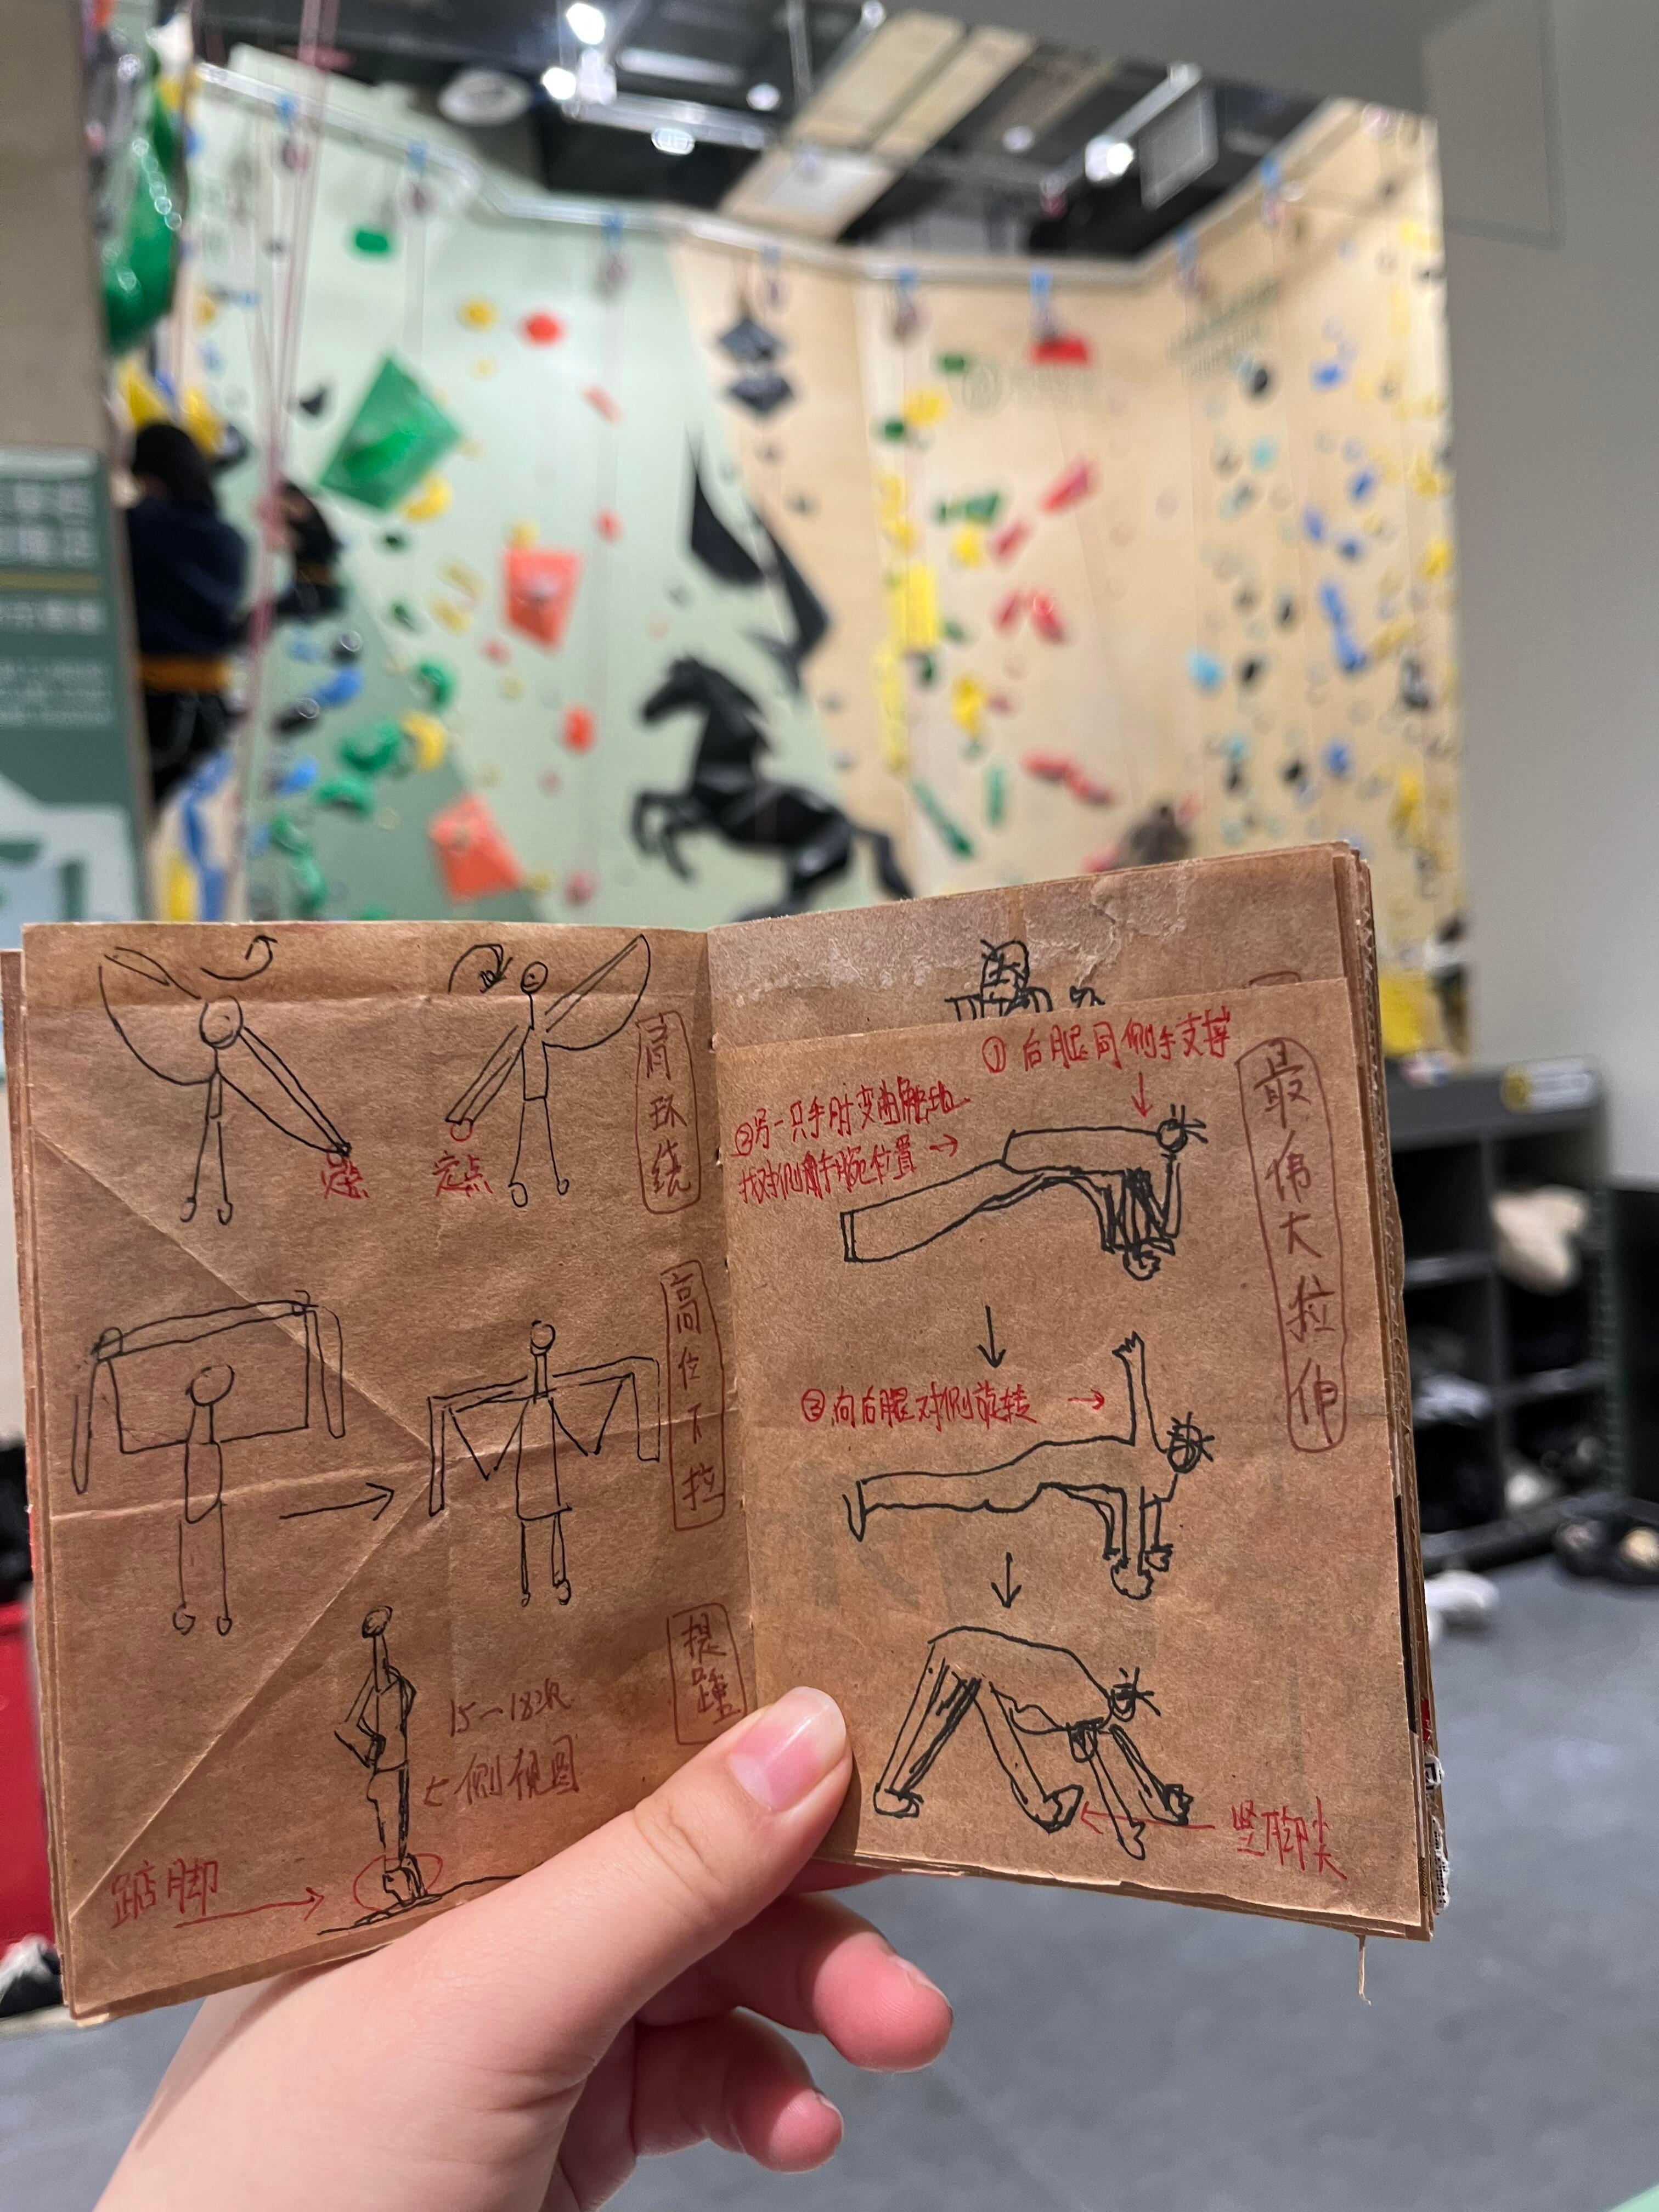 肩环绕
定点
定点
高位下拉
提踵
15-18次
←侧视图
踮脚
最伟大拉伸
①后腿同侧手支撑
②另一只手肘变曲触地
找对侧脚腕位置
③向后腿对侧旋转
竖脚尖